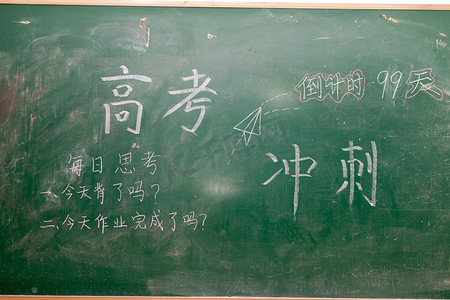 倒计时 99天
高考
冲刺
每日思考
一、今天背了吗?
二、今天作业完成了吗?